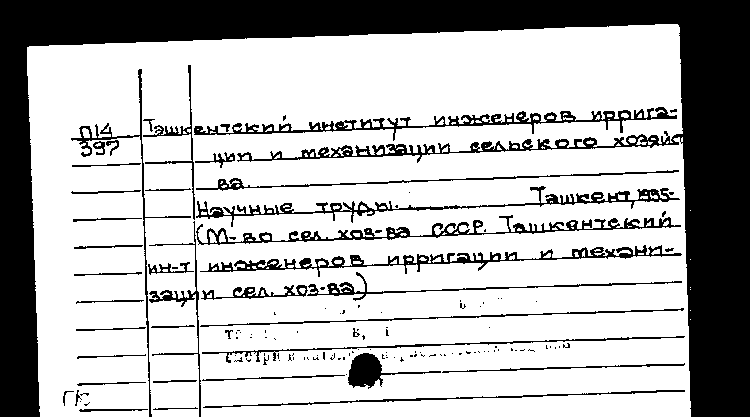 П14 Ташкентский институт инженеров иррига-
397 ции и механизации сельского хозяйс
ва.
Научные труды. Ташкент, 1935-
(М-во сел. хоз-ва СССР. Ташкентский
ин-т инженеров ирригации и механи-
зации сел. хоз-ва)
смотри в
ГК